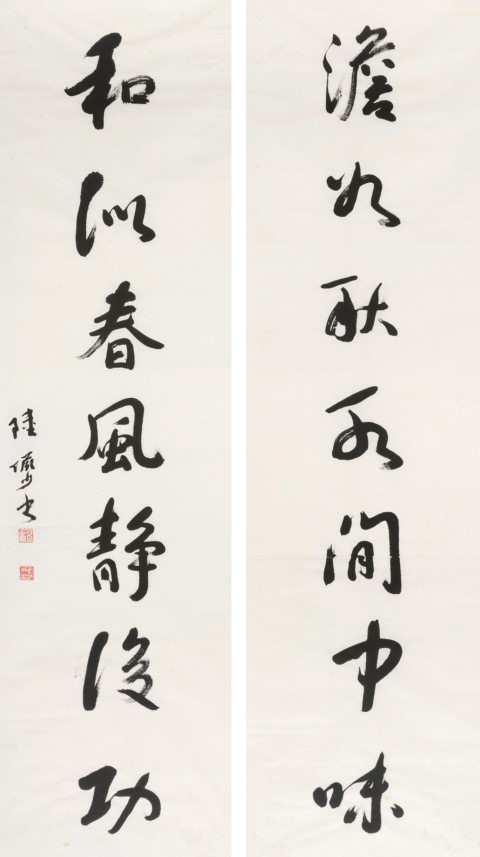 澹如秋水閒中味
和似春風静後功
陸儼少書